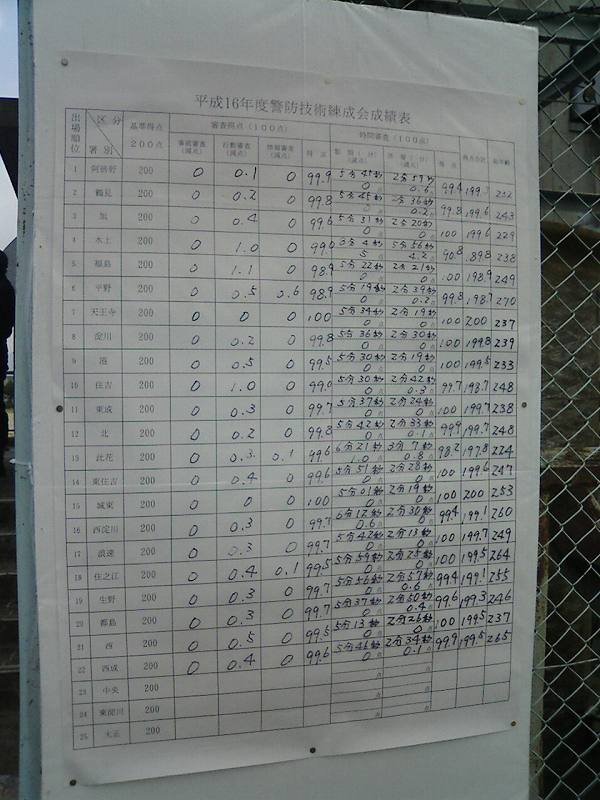 平成16年度警防技術練成会成績表
出場順位 区分 署別 基準得点 200点 審査得点(100点) 時間審査(100点) 得点合計 総年齢
事前審査(減点) 行動審査(減点) 得点 得点
1 阿倍野 200 0 0.1 0 99.9 5分45秒 0 2分57秒 0.6 99.4 232
2 鶴見 200 0 0.2 0 99.8 5分45秒 0 0.2 99.8 199.6 243
3 旭 200 0 0.4 0 99.6 5分31秒 0 2分20秒 0 100 199.6 229
4 水上 200 0 1.0 0 99.0 5 5分56秒 4.2 90.8 238
5 福島 200 0 1.1 0 98.9 5分22秒 0 2分21秒 0 100 198.9 249
6 平野 200 0 0.5 0.6 98.9 5分19秒 0 2分39秒 0.2 99.8 198.7 270
7 天王寺 200 0 0 0 100 5分34秒 0 2分19秒 0 100 200 237
8 淀川 200 0 0.2 0 99.8 5分36秒 0 2分30秒 0 100 199.8 239
9 港 200 0 0.5 0 99.5 5分30秒 0 2分19秒 0 100 199.5 233
10 住吉 200 0 1.0 0 99.0 5分30秒 0 2分42秒 0.3 99.7 198.7 248
11 東成 200 0 0.3 0 99.7 5分37秒 0 2分24秒 0 100 199.7 238
12 北 200 0 0.2 0 99.8 5分42秒 0 2分33秒 0.1 99.9 199.7 248
13 此花 200 0 0.3 0.1 99.6 6分21秒 1.0 3分7秒 0.8 98.2 197.8 224
14 東住吉 200 0 0.4 0 99.6 5分51秒 0 2分28秒 0 100 199.6 247
15 城東 200 0 0 0 100 5分01秒 0 2分19秒 0 100 200 253
16 西淀川 200 0 0.3 0 99.7 6分12秒 0.6 2分30秒 0 99.4 199.1 260
17 浪速 200 0 0.3 0 99.7 5分42秒 0 2分13秒 0 100 199.7 249
18 住之江 200 0 0.4 0.1 99.5 5分59秒 0 2分25秒 0 100 199.5 264
19 生野 200 0 0.3 0 99.7 5分56秒 0 2分57秒 0.6 99.4 199.1 255
20 都島 200 0 0.3 0 99.7 5分37秒 0 2分50秒 0.4 99.6 199.3 246
21 西 200 0 0.5 0 99.5 5分13秒 0 2分26秒 0 100 199.5 237
22 西成 200 0 0.4 0 99.6 5分46秒 0 2分34秒 0.1 99.9 199.5 265
23 中央 200
24 東淀川 200
25 大正 200